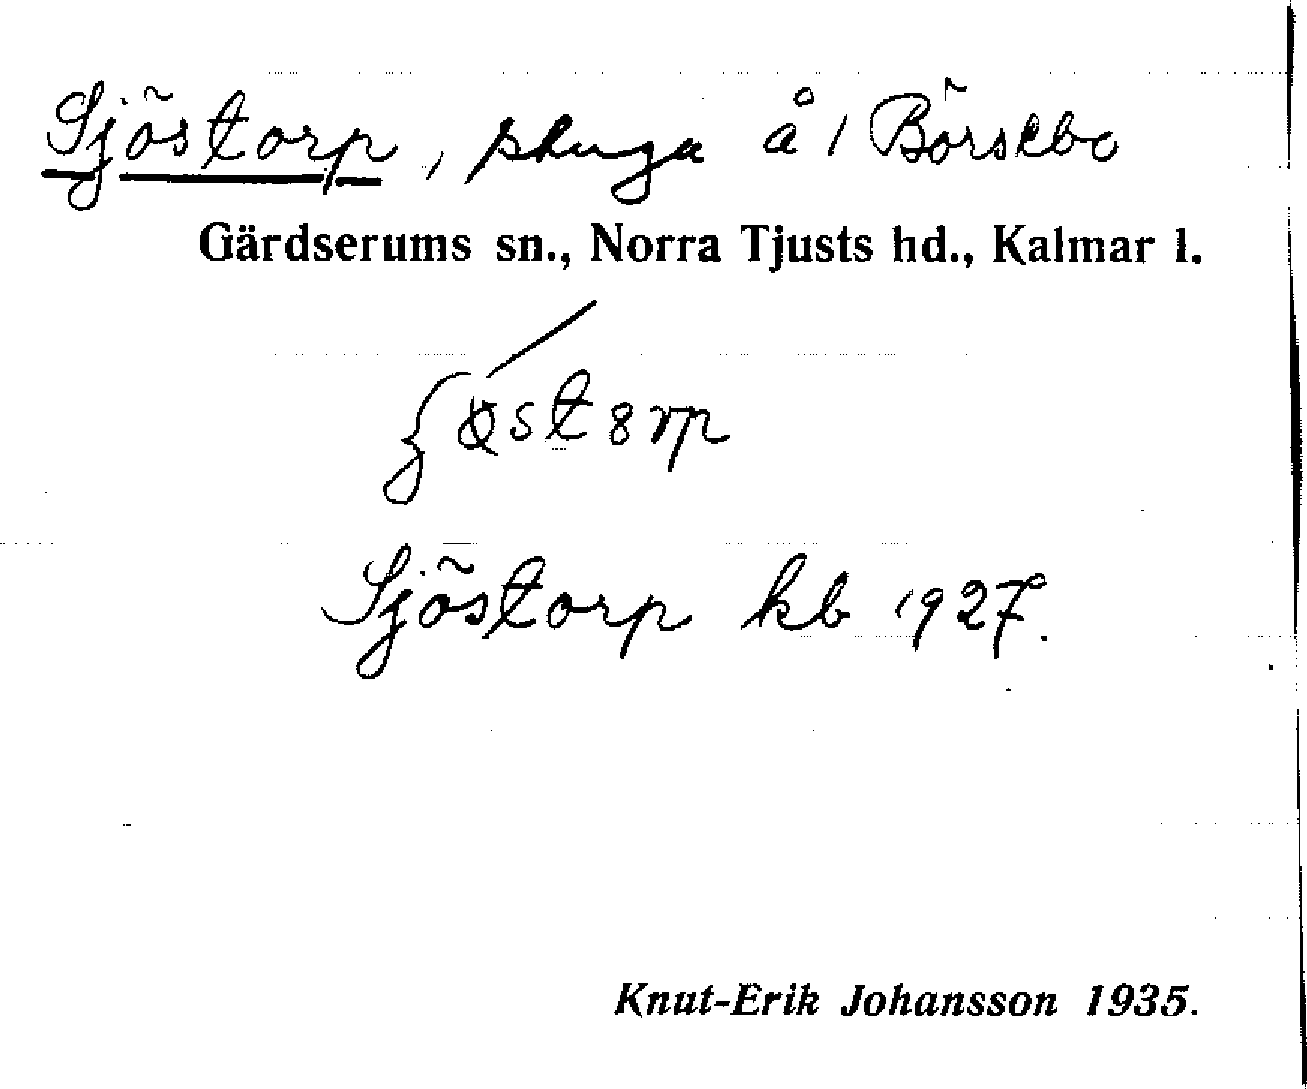 Sjöstorp, stuga å / Börsebo
Gärdserums sn., Norra Tjusts hd., Kalmar l.
Sjöstorp kb 1927.
Knut-Erik Johansson 1935.